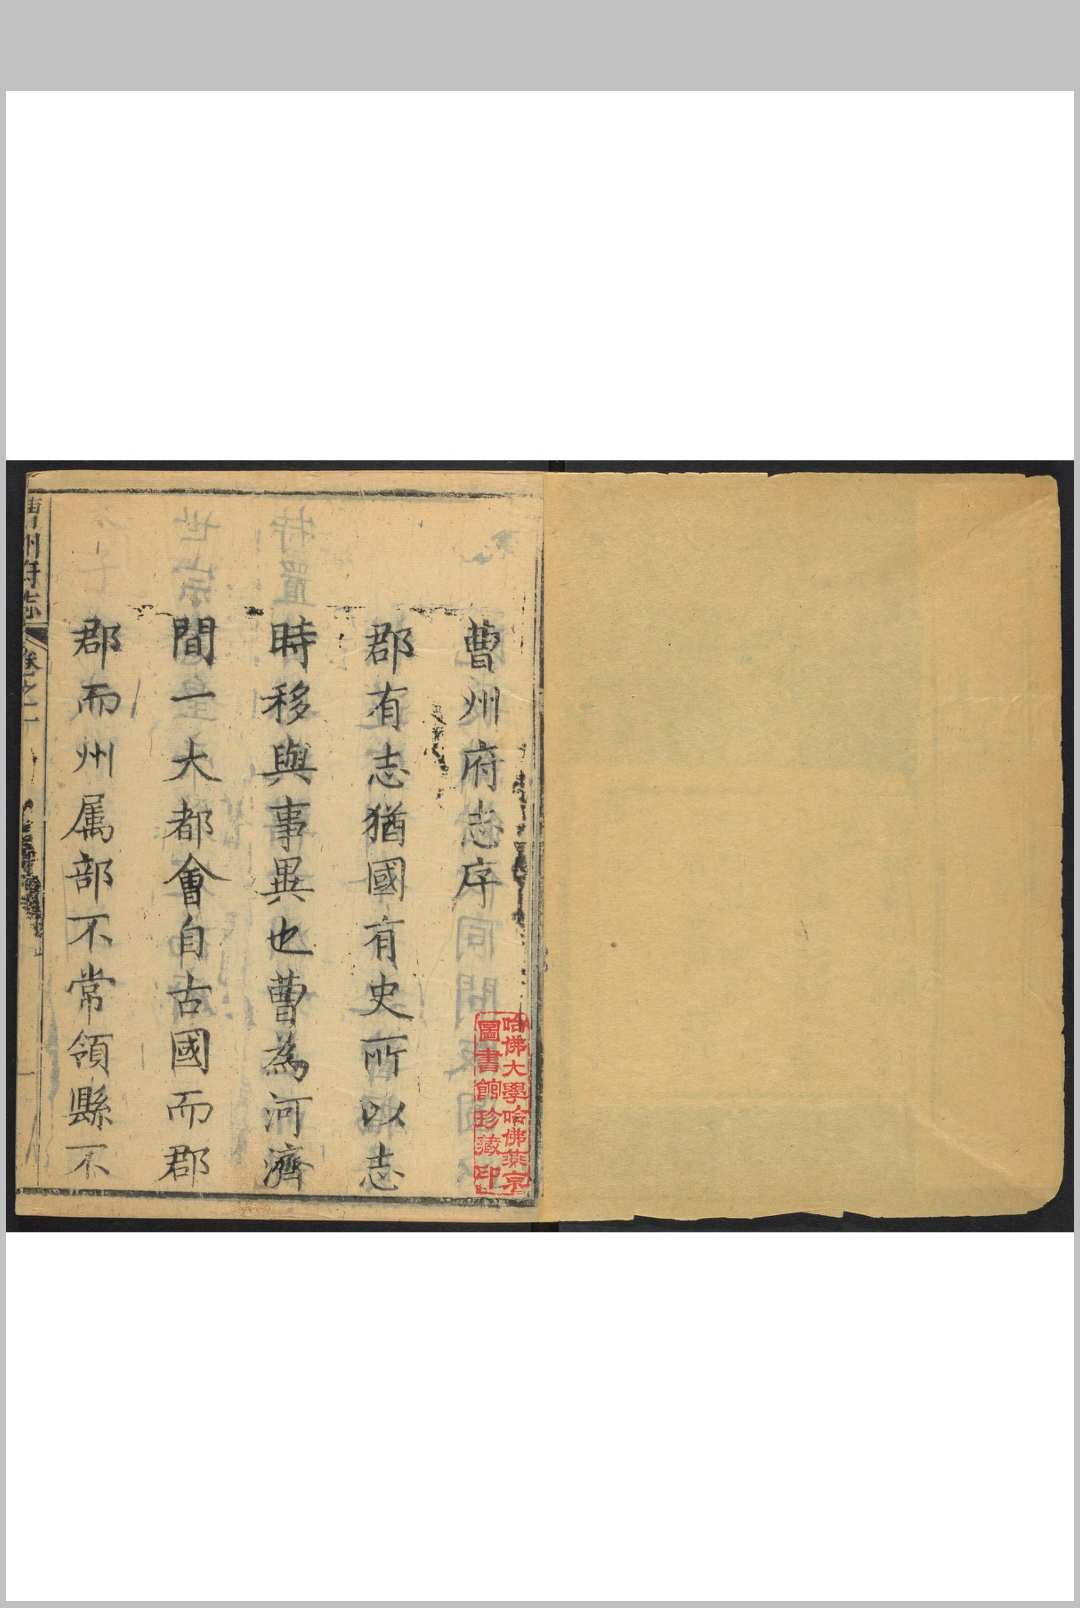 曹州府志序
郡有志猶國有史所以志
時移與事異也曹為河濟
間一大都會自古國而郡
郡而州属部不常領縣不
曹州府志
卷之一
哈佛大學哈佛燕京
圖書館珍藏印